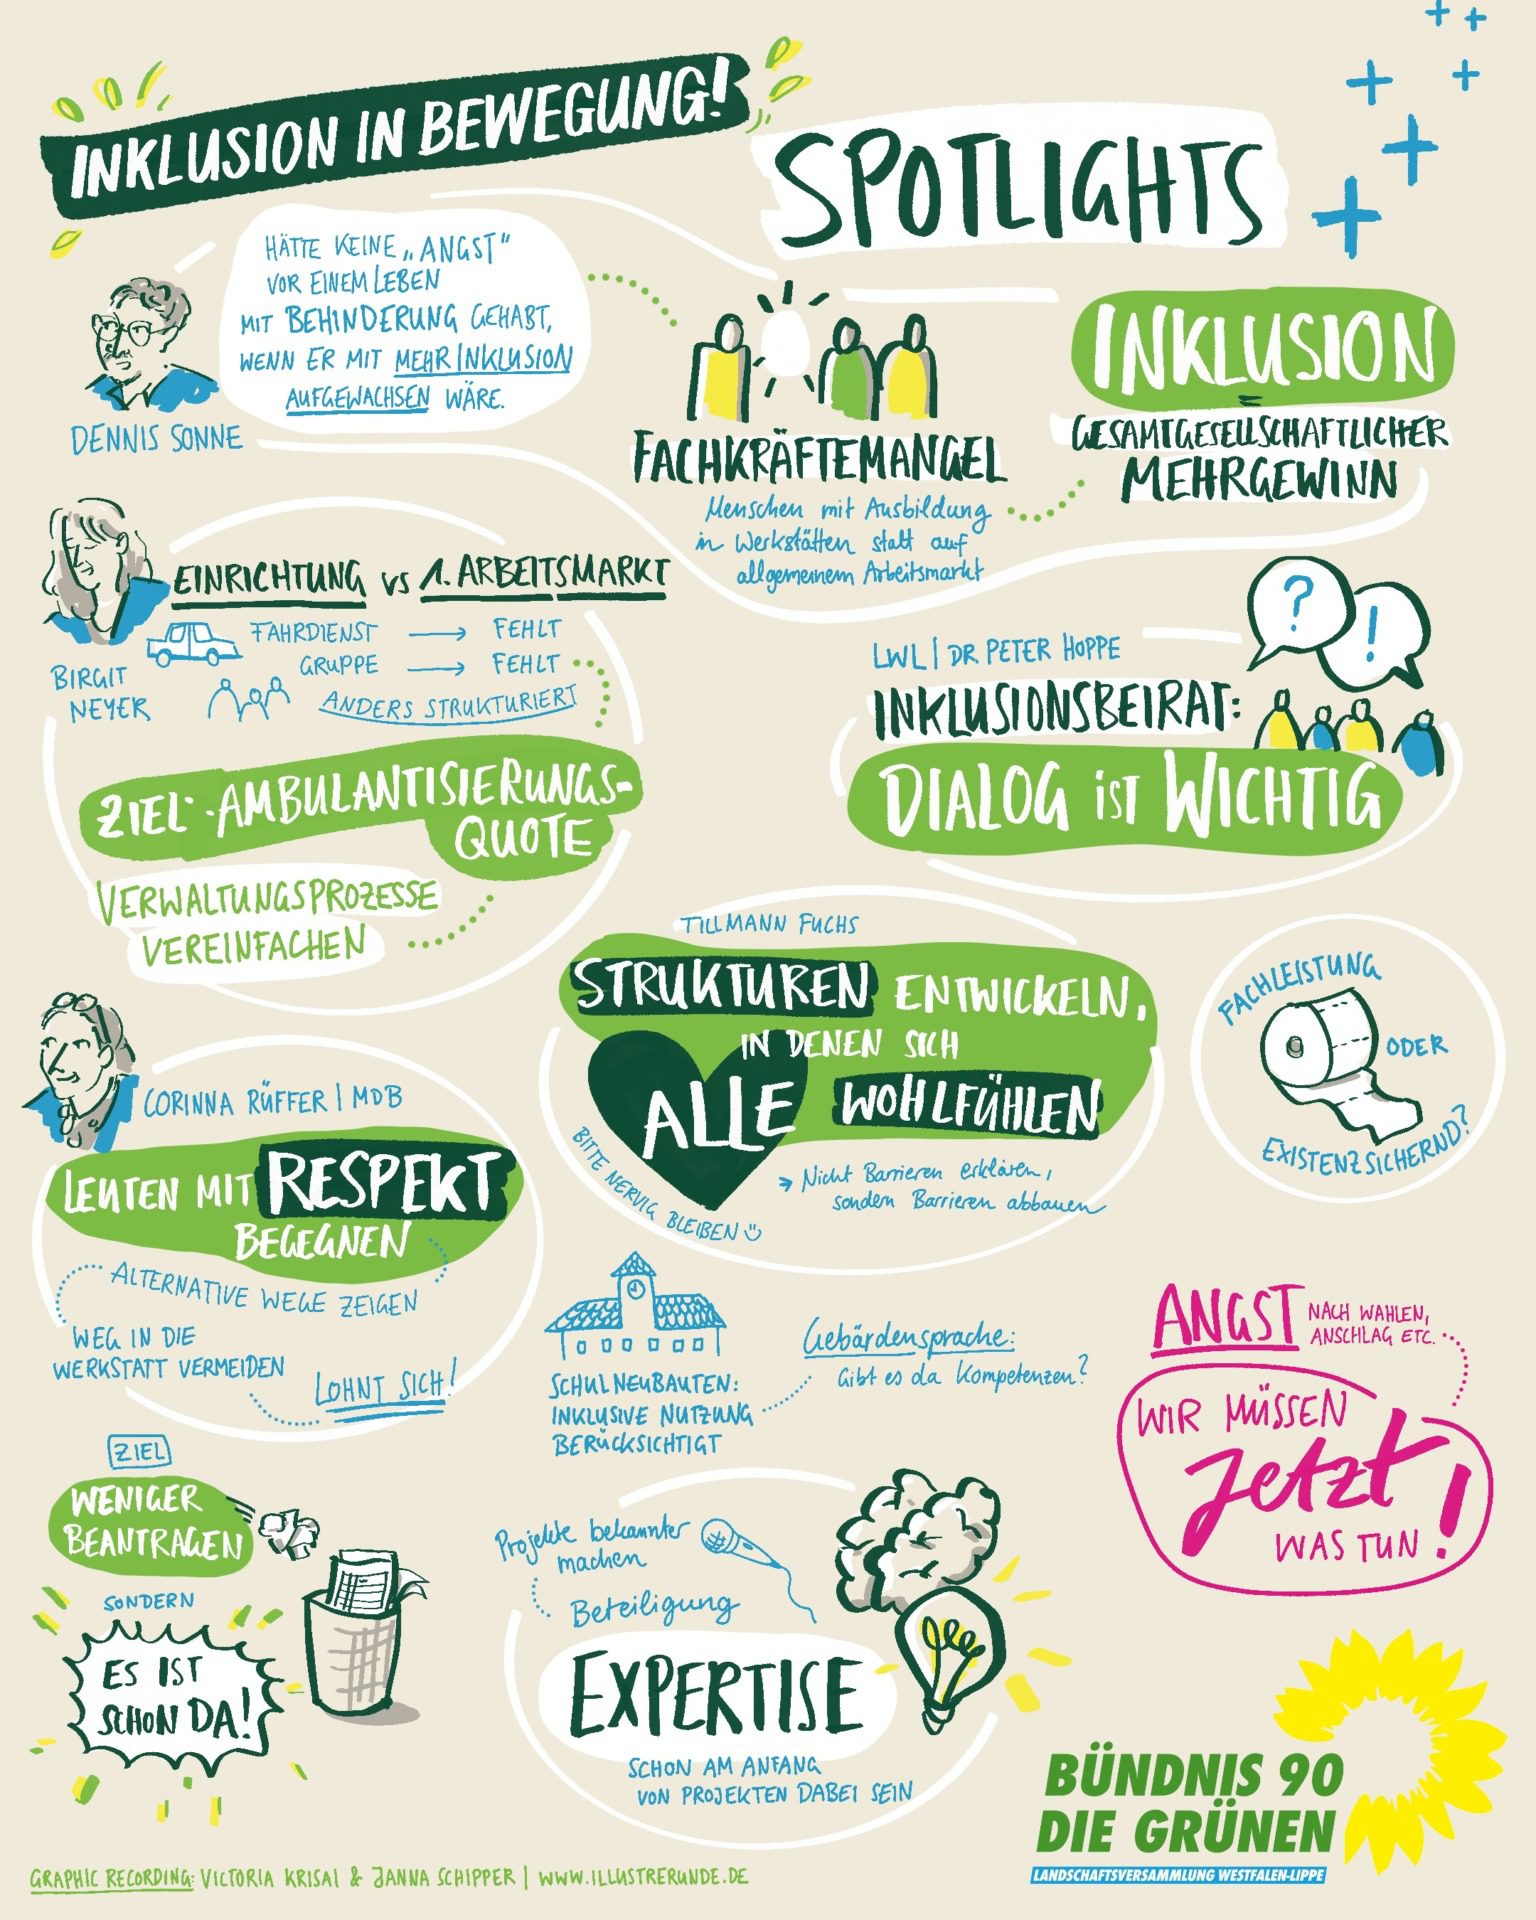 INKLUSION IN BEWEGUNG!
SPOTLIGHTS
HÄTTE KEINE „ANGST"
VOR EINEM LEBEN
MIT BEHINDERUNG GEHABT,
WENN ER MIT MEHR INKLUSION
AUFGEWACHSEN WÄRE.
DENNIS SONNE
FACHKRÄFTEMANGEL
Menschen mit Ausbildung
in Werkstätten statt auf
allgemeinem Arbeitsmarkt
INKLUSION
=
GESAMTGESELLSCHAFTLICHER
MEHRGEWINN
BIRGIT
NEYER
EINRICHTUNG VS 1. ARBEITSMARKT
FAHRDIENST → FEHLT
GRUPPE → FEHLT
ANDERS STRUKTURIERT
ZIEL·AMBULANTISIERUNGS-
QUOTE
VERWALTUNGSPROZESSE
VEREINFACHEN
?
!
LWL | DR. PETER HOPPE
INKLUSIONSBEIRAT:
DIALOG iST WICHTIG
TILLMANN FUCHS
STRUKTUREN ENTWICKELN,
IN DENEN SICH
ALLE WOHLFÜHLEN
BITTE NERVIG BLEIBEN
→ Nicht Barrieren erklären,
sondern Barrieren abbauen
FACHLEISTUNG
ODER
EXISTENZSICHERND?
CORINNA RÜFFER | MDB
LEUTEN MIT RESPEKT
BEGEGNEN
ALTERNATIVE WEGE ZEIGEN
WEG IN DIE
WERKSTATT VERMEIDEN
LOHNT SICH!
SCHULNEUBAUTEN:
INKLUSIVE NUTZUNG
BERÜCKSICHTIGT
Gebärdensprache:
Gibt es da Kompetenzen?
ANGST NACH WAHLEN,
ANSCHLAG ETC.
WIR MÜSSEN
Jetzt
WAS TUN!
ZIEL
WENIGER
BEANTRAGEN
SONDERN
ES IST
SCHON DA!
Projekte bekannter
machen
Beteiligung
EXPERTISE
SCHON AM ANFANG
VON PROJEKTEN DABEI SEIN
BÜNDNIS 90
DIE GRÜNEN
LANDSCHAFTSVERSAMMLUNG WESTFALEN-LIPPE
GRAPHIC RECORDING: VICTORIA KRISAI & JANNA SCHIPPER | WWW.ILLUSTRERUNDE.DE